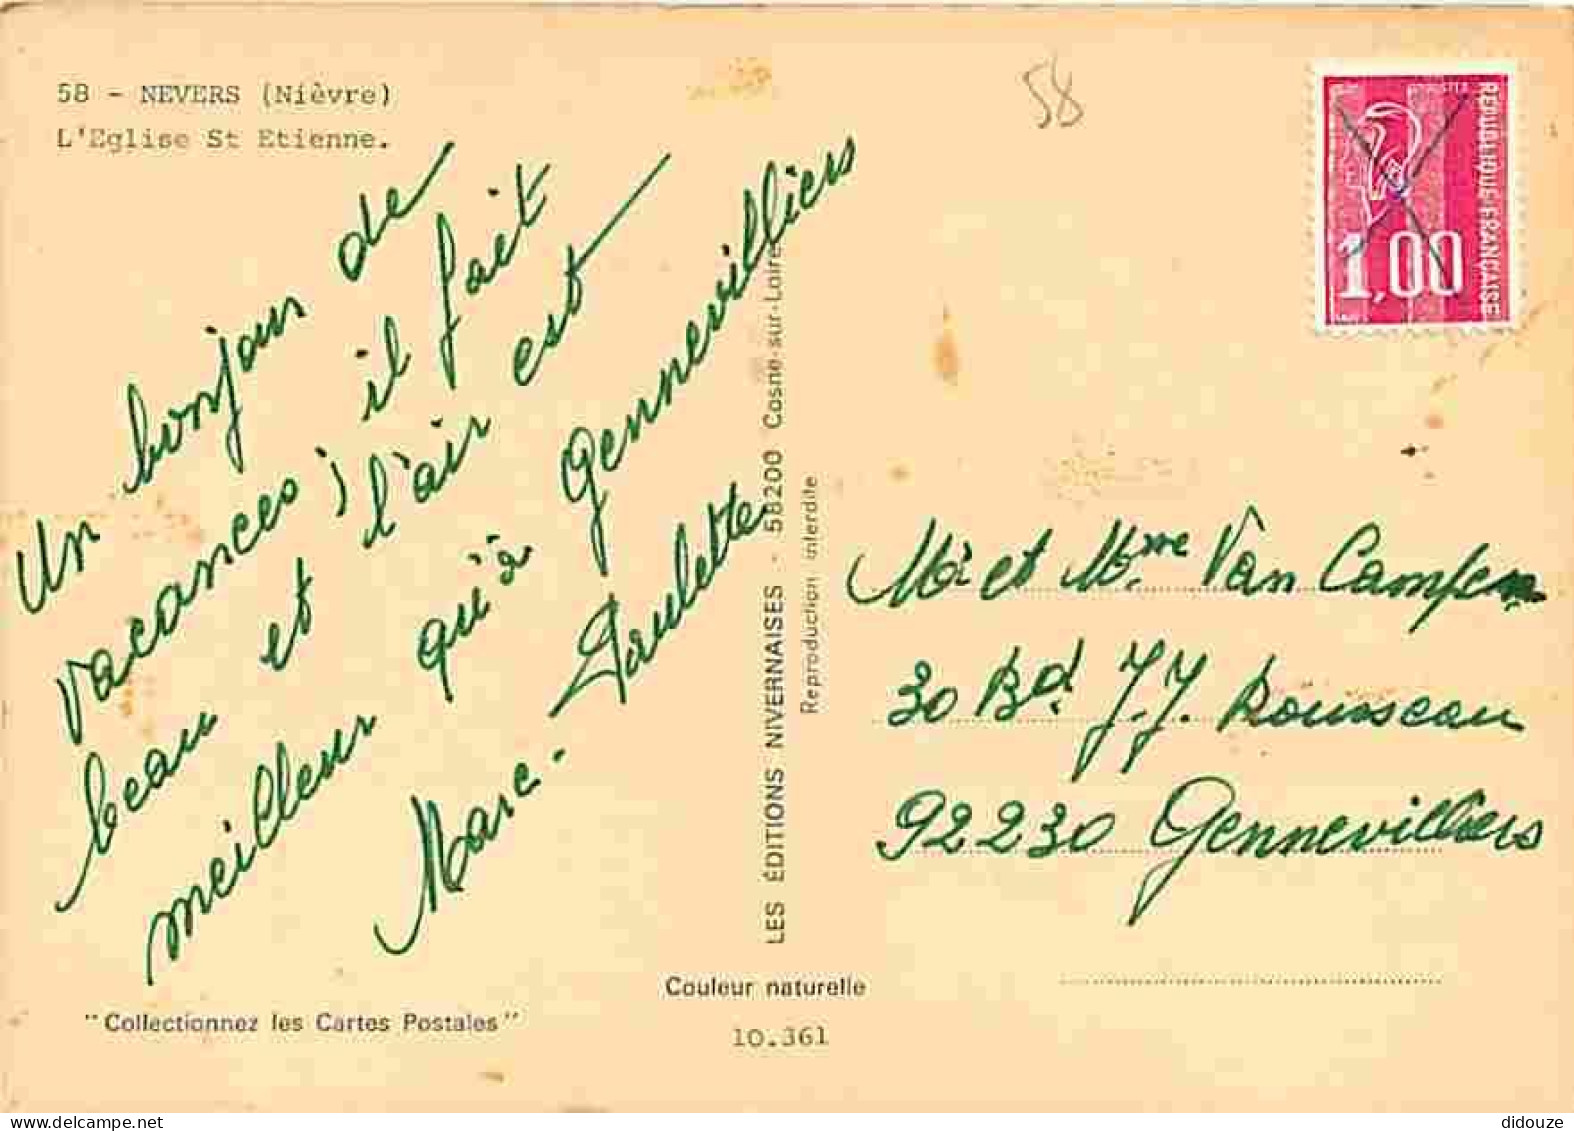 58 - NEVERS (Nièvre)
L'Eglise St Etienne.
58
REPUBLIQUE FRANÇAISE
1,00
Un bonjour de
vacances; il fait
beau et l'air est
meilleur qu'à Gennevilliers
Marc - Paulette
LES ÉDITIONS NIVERNAISES - 58200 Cosne-sur-Loire
Reproduction interdite
Mr et Mme Van Campen
30 Bd. J.J. Rousseau
92230 Gennevilliers
Couleur naturelle
"Collectionnez les Cartes Postales"
10.361
didouze